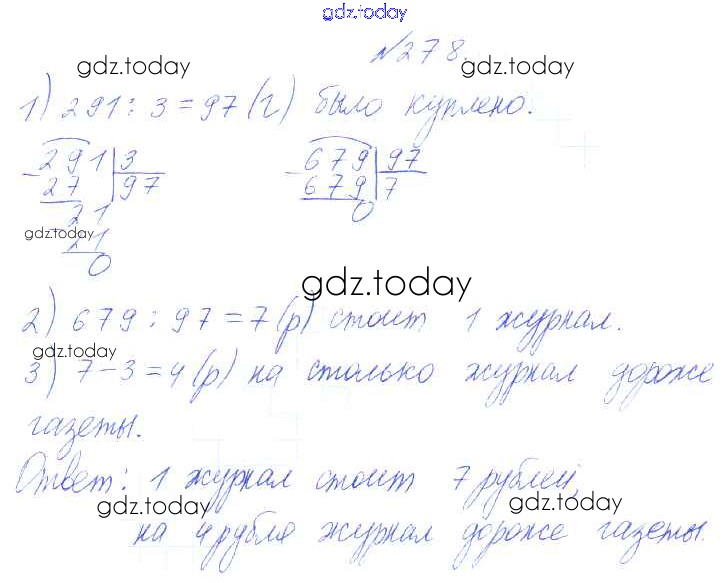 gdz.today
№278.
gdz.today
1) 291 : 3 = 97 (г) было куплено.
291 | 3
27 | 97
21
21
0
679 | 97
679 | 7
0
gdz.today
gdz.today
2) 679 : 97 = 7 (р) стоит 1 журнал.
gdz.today
3) 7 - 3 = 4 (р) на столько журнал дороже
газеты.
Ответ: 1 журнал стоит 7 рублей,
gdz.today gdz.today
на 4 рубля журнал дороже газеты.